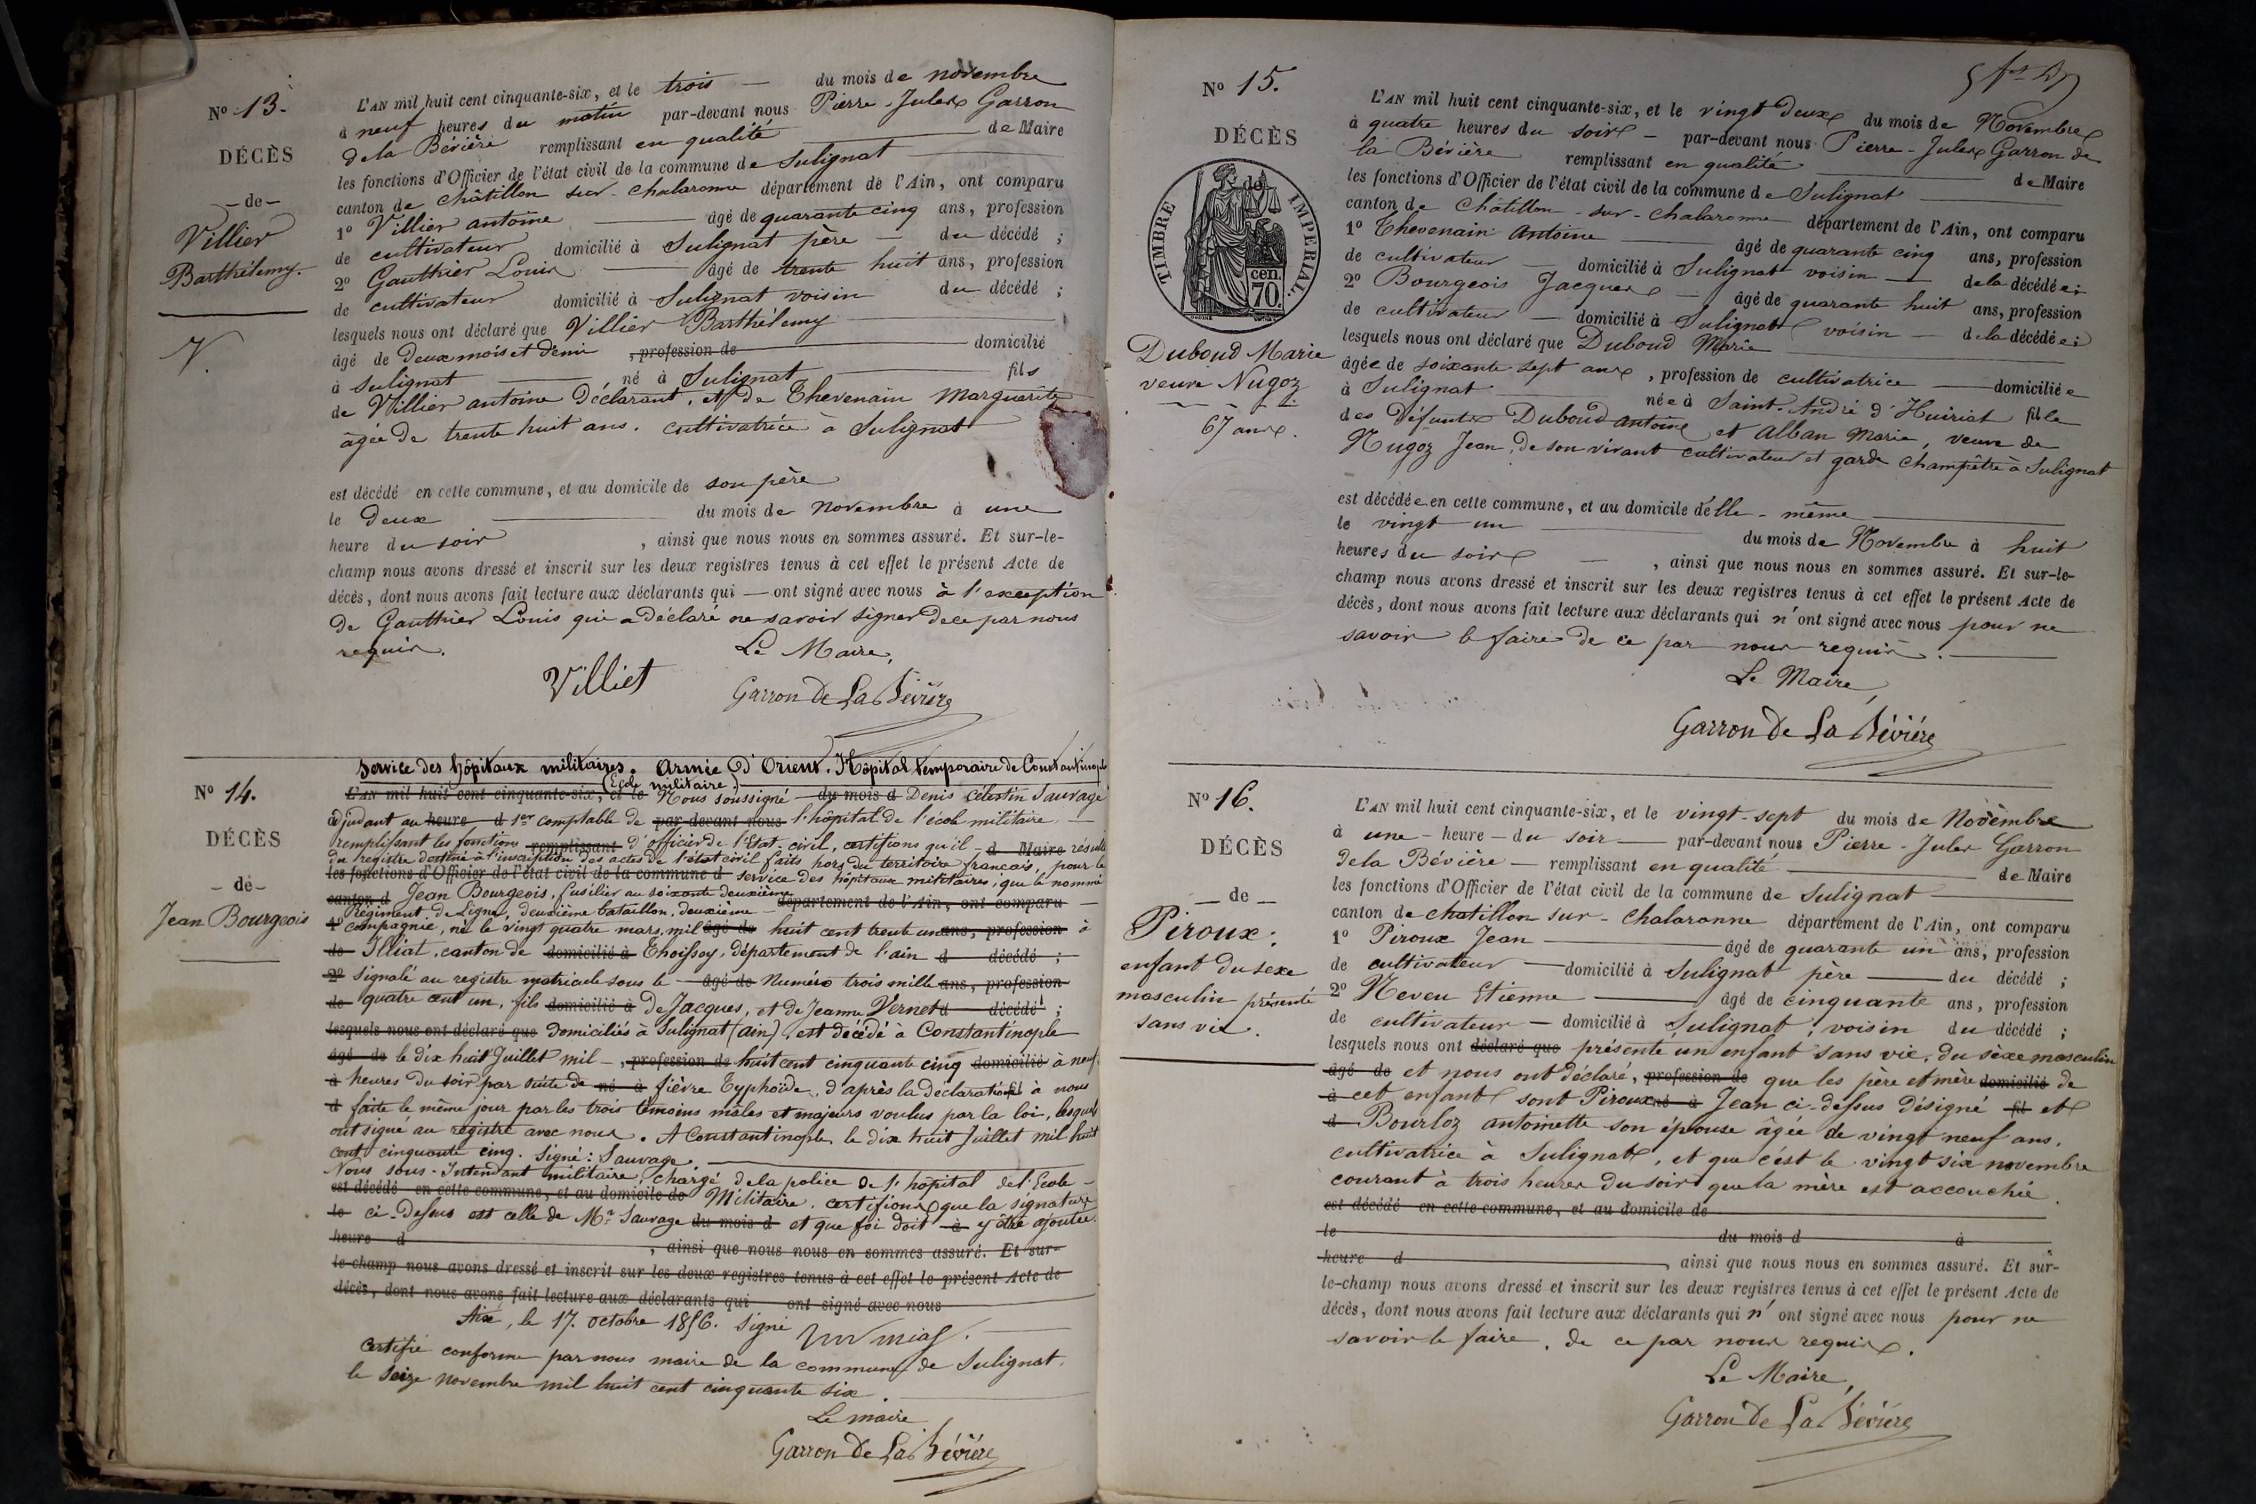 No 13.
DÉCÈS
- de -
Villier
Barthélemy.
V.
L'AN mil huit cent cinquante-six, et le trois du mois de novembre
à neuf heures du matin par-devant nous Pierre-Jules Garron
de la Bévière remplissant en qualité de Maire
les fonctions d'Officier de l'état civil de la commune de Sulignat
canton de châtillon sur-chalaronne département de l'Ain, ont comparu
1o Villier antoine âgé de quarante cinq ans, profession
de cultivateur domicilié à Sulignat père du décédé ;
2o Gauthier Louis âgé de trente huit ans, profession
de cultivateur domicilié à Sulignat voisin du décédé ;
lesquels nous ont déclaré que Villier Barthélemy
âgé de deux mois et demi , profession de domicilié
à Sulignat né à Sulignat fils
de Villier antoine Déclarant, et de Thevenain Marguerite
âgée de trente huit ans. cultivatrice à Sulignat
est décédé en cette commune, et au domicile de son père
le deux du mois de novembre à une
heure du soir , ainsi que nous nous en sommes assuré. Et sur-le-
champ nous avons dressé et inscrit sur les deux registres tenus à cet effet le présent Acte de
décès, dont nous avons fait lecture aux déclarants qui — ont signé avec nous à l'exception
de Gauthier Louis qui a déclaré ne savoir signer de ce par nous
requis.
Le Maire,
Villiet Garron De La Bévière
No 14.
DÉCÈS
- de -
Jean Bourgeois
Service des hôpitaux militaires. Armée d'Orient. Hôpital temporaire de Constantinople
(Ecole militaire)
L'AN mil huit cent cinquante-six, et le Nous soussigné du mois d Denis Célestin Sauvage
adjudant au heure d 1er comptable de par-devant nous l'hôpital de l'école militaire,
remplissant les fonctions remplissant d'officier de l'Etat-civil, certifions qu'il d Maire résulte
du registre destiné à l'inscription des actes de l'état civil faits hors du territoire français, pour le
les fonctions d'Officier de l'état civil de la commune d service des hôpitaux militaires, que le nommé
canton d Jean Bourgeois, fusilier au soixante deuxième département de l'Ain, ont comparu
Régiment de Ligne, deuxième bataillon, deuxième
1o compagnie, né le vingt quatre mars, mil âgé de huit cent trente un ans, profession à
de Illiat, canton de domicilié à Thoissey, département de l'ain d décédé ;
2o signalé au registre matricule sous le âgé de Numéro trois mille ans, profession
de quatre cent un, fils domicilié à De Jacques, et de Jeanne Vernet d décédé ;
lesquels nous ont déclaré que Domiciliés à Sulignat (ain), est décédé à Constantinople
âgé de le dix huit Juillet mil , profession de huit cent cinquante cinq domicilié à neuf
à heures du soir par suite de né à fièvre Typhoïde, d'après la déclaration fil à nous
d faite le même jour par les trois témoins mâles et majeurs voulus par la loi, lesquels
ont signé au registre avec nous. A Constantinople, le dix huit Juillet mil huit
cent cinquante cinq. Signé : Sauvage
Nous sous-Intendant militaire, chargé de la police de l'hôpital de l'Ecole
est décédé en cette commune, et au domicile de Militaire, certifions que la signature
le ci-Dessus est celle de Mr. Sauvage du mois d et que foi doit à y être ajoutée.
heure d , ainsi que nous nous en sommes assuré. Et sur-
le-champ nous avons dressé et inscrit sur les deux registres tenus à cet effet le présent Acte de
décès, dont nous avons fait lecture aux déclarants qui ont signé avec nous
Aix, le 17. octobre 1856. signé
Certifié conforme par nous maire de la commune de Sulignat.
le seize novembre mil huit cent cinquante six.
Le maire
Garron De La Bévière
No 15.
DÉCÈS
de
TIMBRE IMPERIAL.
cen.
70.
Duboud Marie
veuve Nugoz
67 ans.
L'AN mil huit cent cinquante-six, et le vingt deux du mois de Novembre
à quatre heures du soir par-devant nous Pierre-Jules Garron de
la Bévière remplissant en qualité de Maire
les fonctions d'Officier de l'état civil de la commune de Sulignat
canton de Châtillon-sur-chalaronne département de l'Ain, ont comparu
1o Thevenain Antoine âgé de quarante cinq ans, profession
de cultivateur domicilié à Sulignat voisin de la décédée ;
2o Bourgeois Jacques âgé de quarante huit ans, profession
de cultivateur domicilié à Sulignat voisin de la décédée ;
lesquels nous ont déclaré que Duboud Marie
âgée de soixante sept ans , profession de cultivatrice domiciliée
à Sulignat née à Saint-André d'Huiriat fille
des défunts Duboud antoine et Alban Marie, veuve de
Nugoz Jean, de son vivant cultivateur et garde champêtre à Sulignat
est décédée en cette commune, et au domicile d'elle-même
le vingt-un du mois de Novembre à huit
heures du soir , ainsi que nous nous en sommes assuré. Et sur-le-
champ nous avons dressé et inscrit sur les deux registres tenus à cet effet le présent Acte de
décès, dont nous avons fait lecture aux déclarants qui n'ont signé avec nous pour ne
savoir le faire de ce par nous requis.
Le Maire,
Garron De La Bévière
No 16.
DÉCÈS
- de -
Piroux :
enfant du sexe
masculin présenté
sans vie.
L'AN mil huit cent cinquante-six, et le vingt-sept du mois de Novembre
à une heure du soir par-devant nous Pierre-Jules Garron
de la Bévière remplissant en qualité de Maire
les fonctions d'Officier de l'état civil de la commune de Sulignat
canton de chatillon sur-chalaronne département de l'Ain, ont comparu
1o Piroux Jean âgé de quarante un ans, profession
de cultivateur domicilié à Sulignat père du décédé ;
2o Neveu Etienne âgé de cinquante ans, profession
de cultivateur domicilié à Sulignat, voisin du décédé ;
lesquels nous ont déclaré que présenté un enfant sans vie, du sexe masculin
âgé de et nous ont déclaré, profession de que les père et mère domicilié de
à cet enfant sont Piroux né à Jean ci-dessus désigné fil et
d Bourloz antoinette son épouse âgée de vingt neuf ans.
cultivatrice à Sulignat, et que c'est le vingt six novembre
courant à trois heures du soir que la mère est accouchée.
est décédé en cette commune, et au domicile de
le du mois d à
heure d , ainsi que nous nous en sommes assuré. Et sur-
le-champ nous avons dressé et inscrit sur les deux registres tenus à cet effet le présent Acte de
décès, dont nous avons fait lecture aux déclarants qui n'ont signé avec nous pour ne
savoir le faire, de ce par nous requis.
Le Maire,
Garron De La Bévière